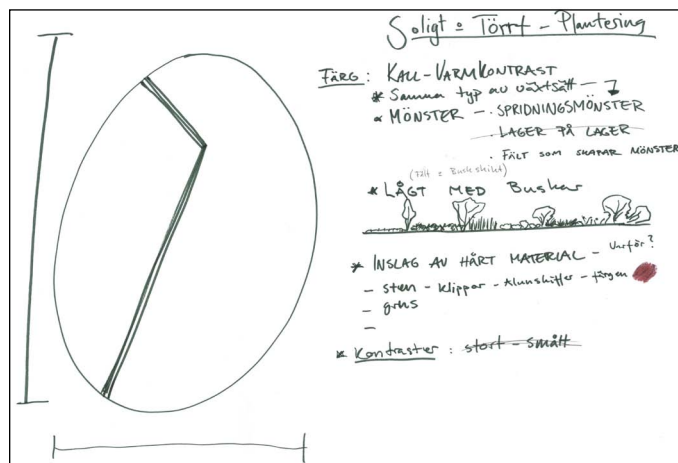 Soligt o Törrt - Plantering
FÄRG: KALL-VARMKONTRAST
* Samma typ av växtsätt -
* MÖNSTER - . SPRIDNINGSMÖNSTER
. LAGER PÅ LAGER
. FÄLT SOM SKAPAR MÖNSTER
(Fält = Buskskikt)
* LÅGT MED Buskar
* INSLAG AV HÅRT MATERIAL - Varför?
- sten - klippor - Alunskiffer - färgen
- grus
-
* Kontraster: stort - smått